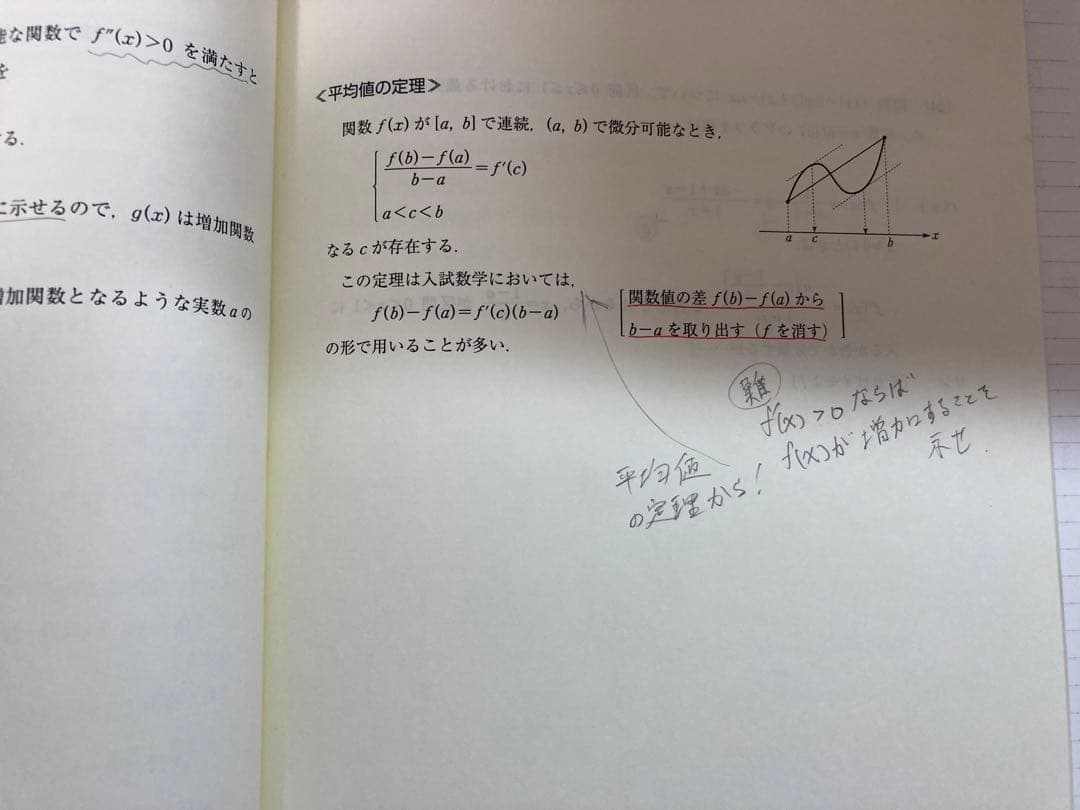 能な関数で f″(x)>0 を満たすと
を
する.
に示せるので, g(x) は増加関数
増加関数となるような実数 a の
<平均値の定理>
関数 f(x) が [a, b] で連続, (a, b) で微分可能なとき,
{ f(b)−f(a) / b−a = f′(c)
a<c<b
なる c が存在する.
a c b x
この定理は入試数学においては,
f(b)−f(a)=f′(c)(b−a)
の形で用いることが多い.
[関数値の差 f(b)−f(a) から
b−a を取り出す (f を消す)]
難
f′(x)>0 ならば
f(x)が増加することを
示せ.
平均値
の定理から!